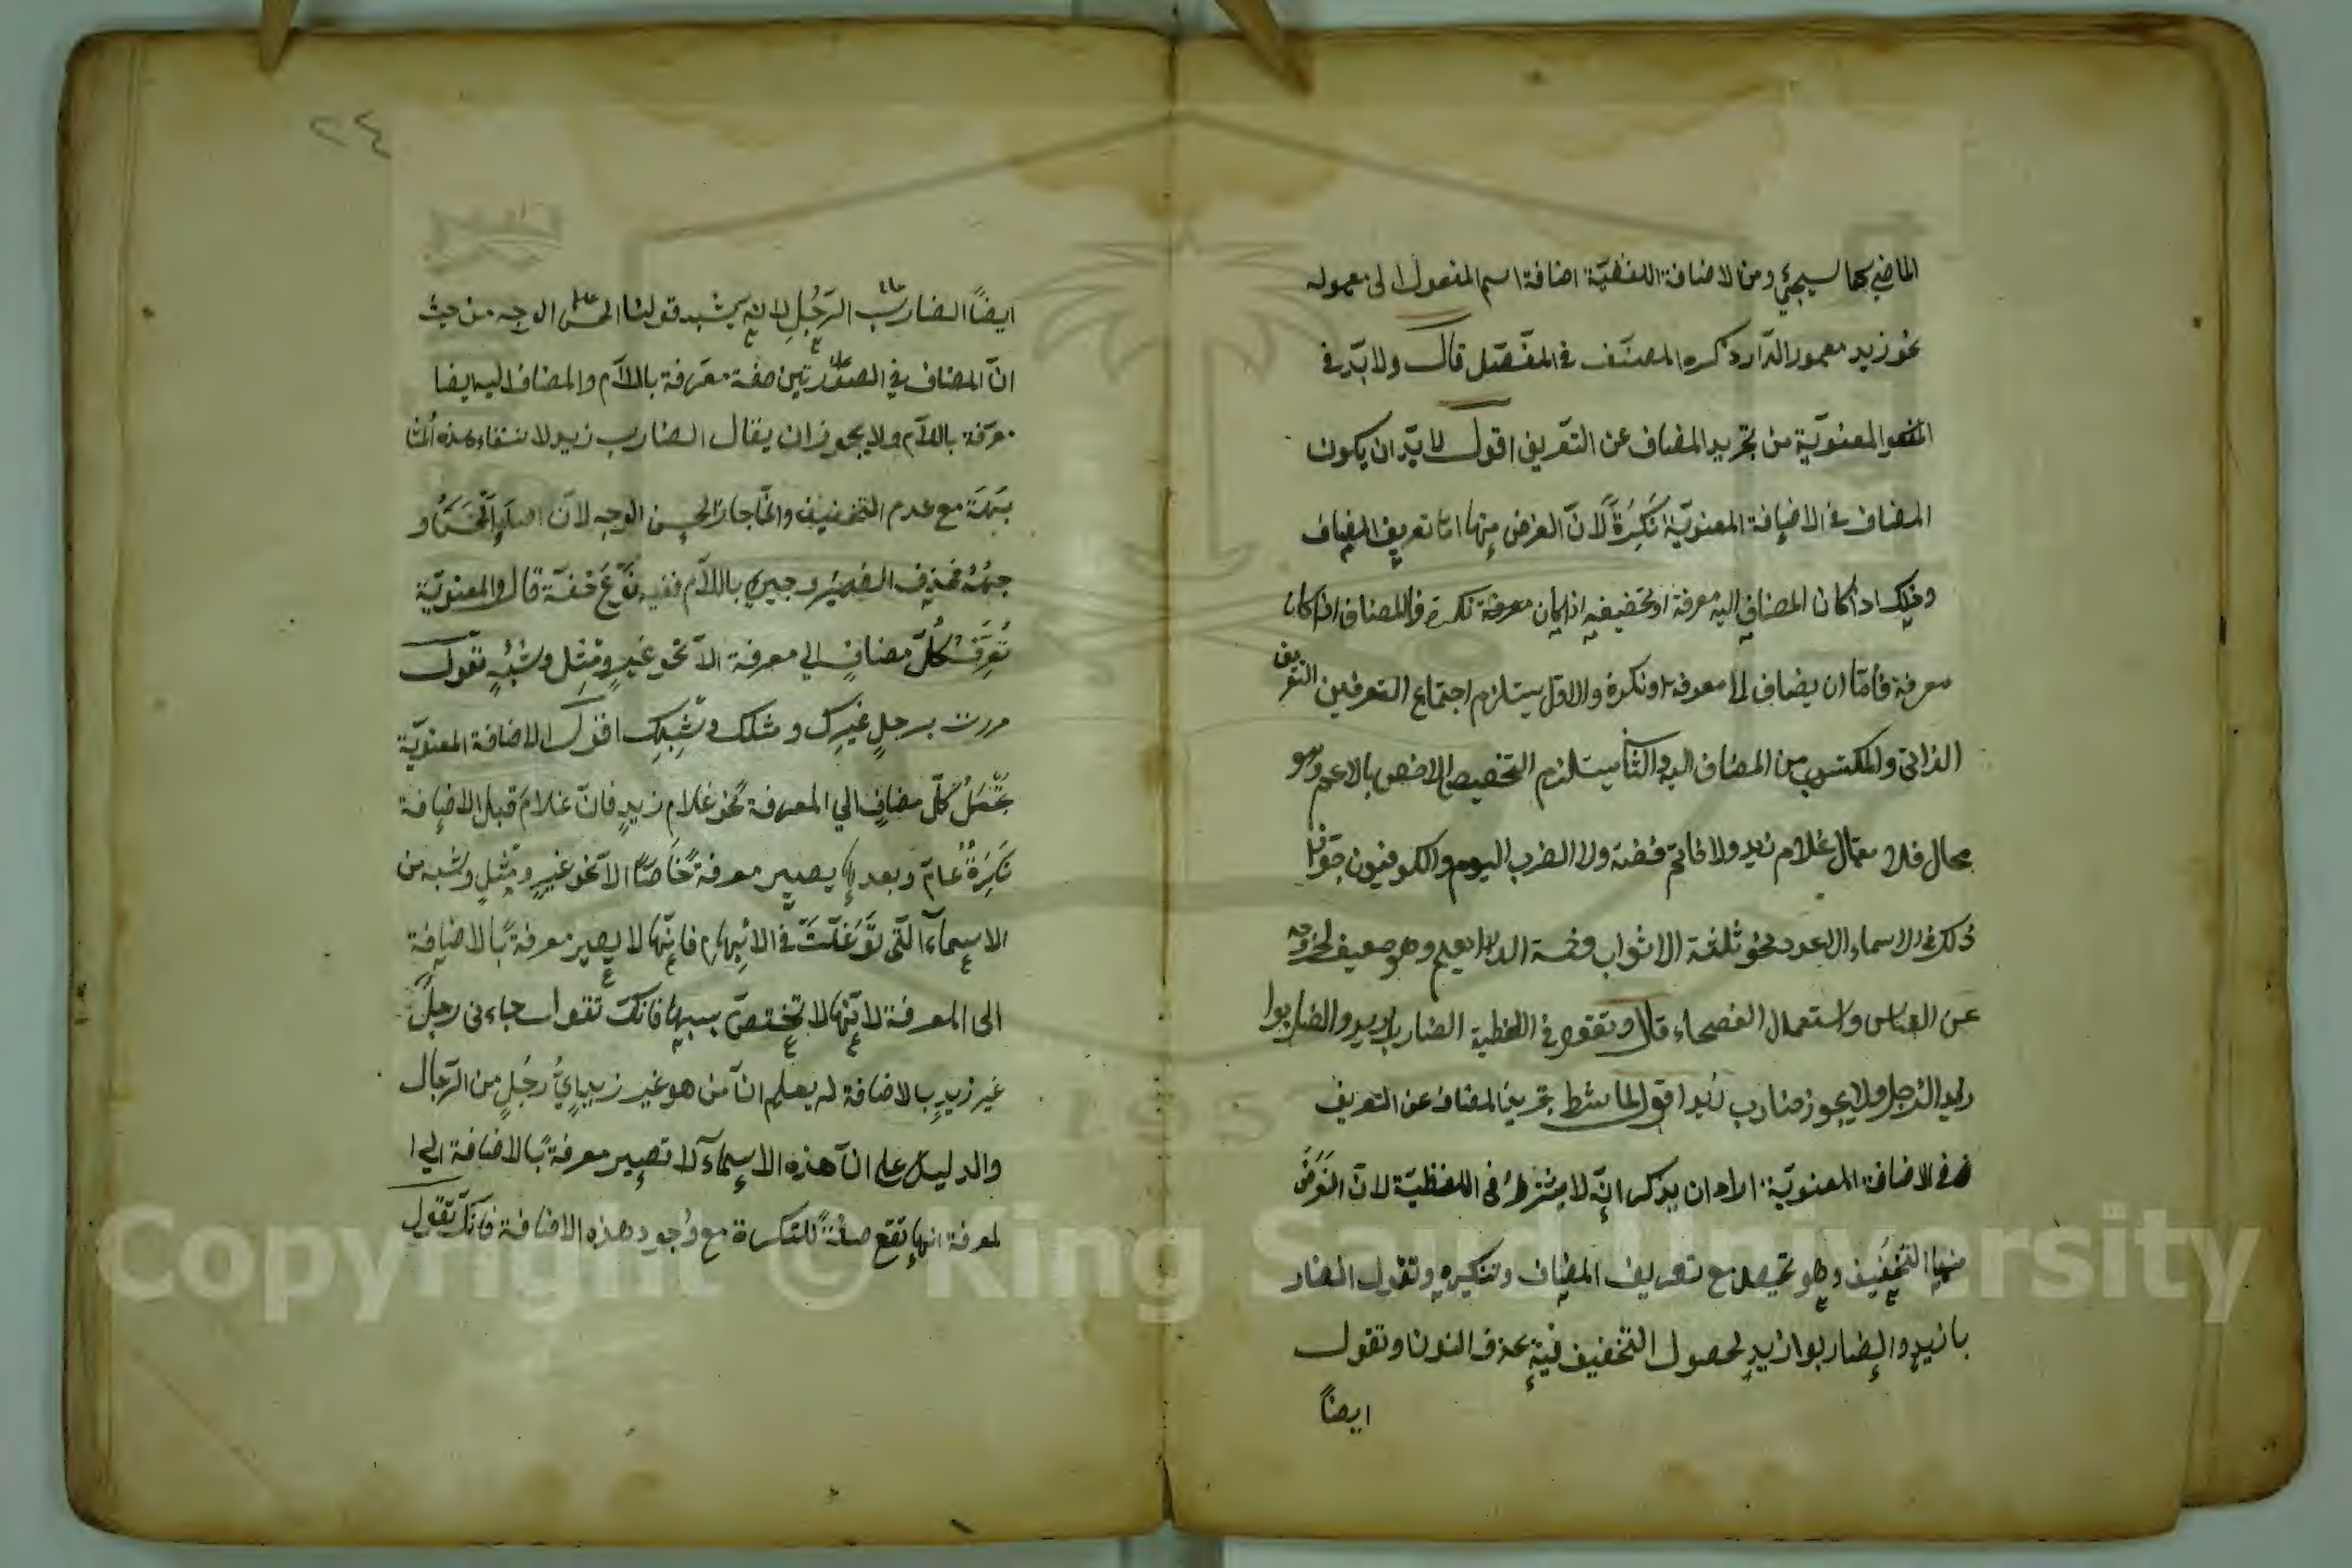 الماضي كما سيجئ ومن الاضافة اللفظيّة اضافة اسم المفعول الى معموله
نحو زيد معمور الدّار ذكره المصنّف في المفصّل قال ولا بدّ في
المعنويّة من تجريد المضاف عن التّعريف اقول لا بدّ ان يكون
المضاف في الاضافة المعنويّة نَكِرَةً لانّ الغرض منها امّا تعريف المضاف
وذلك اذا كان المضاف اليه معرفة او تخصيصه اذا كان نكرة فالمضاف اذا كان
معرفة فامّا ان يضاف الى معرفة او نكرة والاوّل يستلزم اجتماع التعرفين التعريف
الذاتي والمكتسب من المضاف اليه والثاني يستلزم التخصيص الاخص بالاعم وهو
محال فلا يقال الغلام زيد ولا الخاتم فضة ولا الضرب اليوم والكوفيون جوّزوا
ذلك في الاسماء العدد نحو الثلثة الاثواب وخمسة الدراهم وهو ضعيف لخروجه
عن القياس واستعمال الفصحاء قال وتقول في اللفظية الضاربا زيد والضاربوا
زيد والرّجل ولا يجوز الضارب زيد اقول لما شرط تجريد المضاف عن التعريف
في الاضافة المعنويّة اراد ان يذكر انّه لا يشترط في اللفظيّة لانّ الغرض
منها التخفيف وهو يحصل مع تعريف المضاف وتنكيره وتقول الضار
با زيدٍ والضاربوا زيدٍ لحصول التخفيف فيه بحذف النون وتقول
ايضاً
٢٤
ايضاً الضارب الرّجُلِ لانه يشبه قولنا الحسن الوجه من حيث
انّ المضاف في الصورتين صفة معرّفة باللاّم والمضاف اليه ايضا
معرّفة باللاّم ولا يجوز ان يقال الضارب زيد لانتفاء هذه المشا
بهة مع عدم التخفيف وانّما جاز الحسن الوجه لانّ اصله الحسن و
جهُهُ فحذف الضمير وجيئ باللاّم ففيه نَوْعُ خفّة قال والمعنويّة
تُعَرِّفُ كُلَّ مضافٍ الي معرفة الاّ نحو غيرٍ ومِثلٍ وشبْهٍ تقول
مررت برجلٍ غيرِك ومثلك وشِبهِك اقول الاضافة المعنويّة
تجعَلُ كلَّ مضافٍ الي المعرفة نحو غلام زيدٍ فانّ غلامَ قبل الاضافة
نَكِرَةٌ عامّ وبعدها يصير معرفةً خاصّاً الاّ نحو غيرٍ ومثلٍ وشبه من
الاسماء الّتي توَغّلَتْ في الابهام فانّها لا يصير معرفةً بالاضافة
الى المعرفة لانّها لا تختصّ بسببها فانّك تقول جاءني رجلٌ
غير زيدٍ بالاضافة لم يعلم انّ من هو غير زيدٍ ايُّ رجُلٍ من الرّجال
والدليل على انّ هذه الاسماء لا تصير معرفةً بالاضافة الي ا
لمعرفة انها تقع صفةً للنّكرة مع وُجود هذه الاضافة فانّك تقول
Copyright © King Saud University
1957